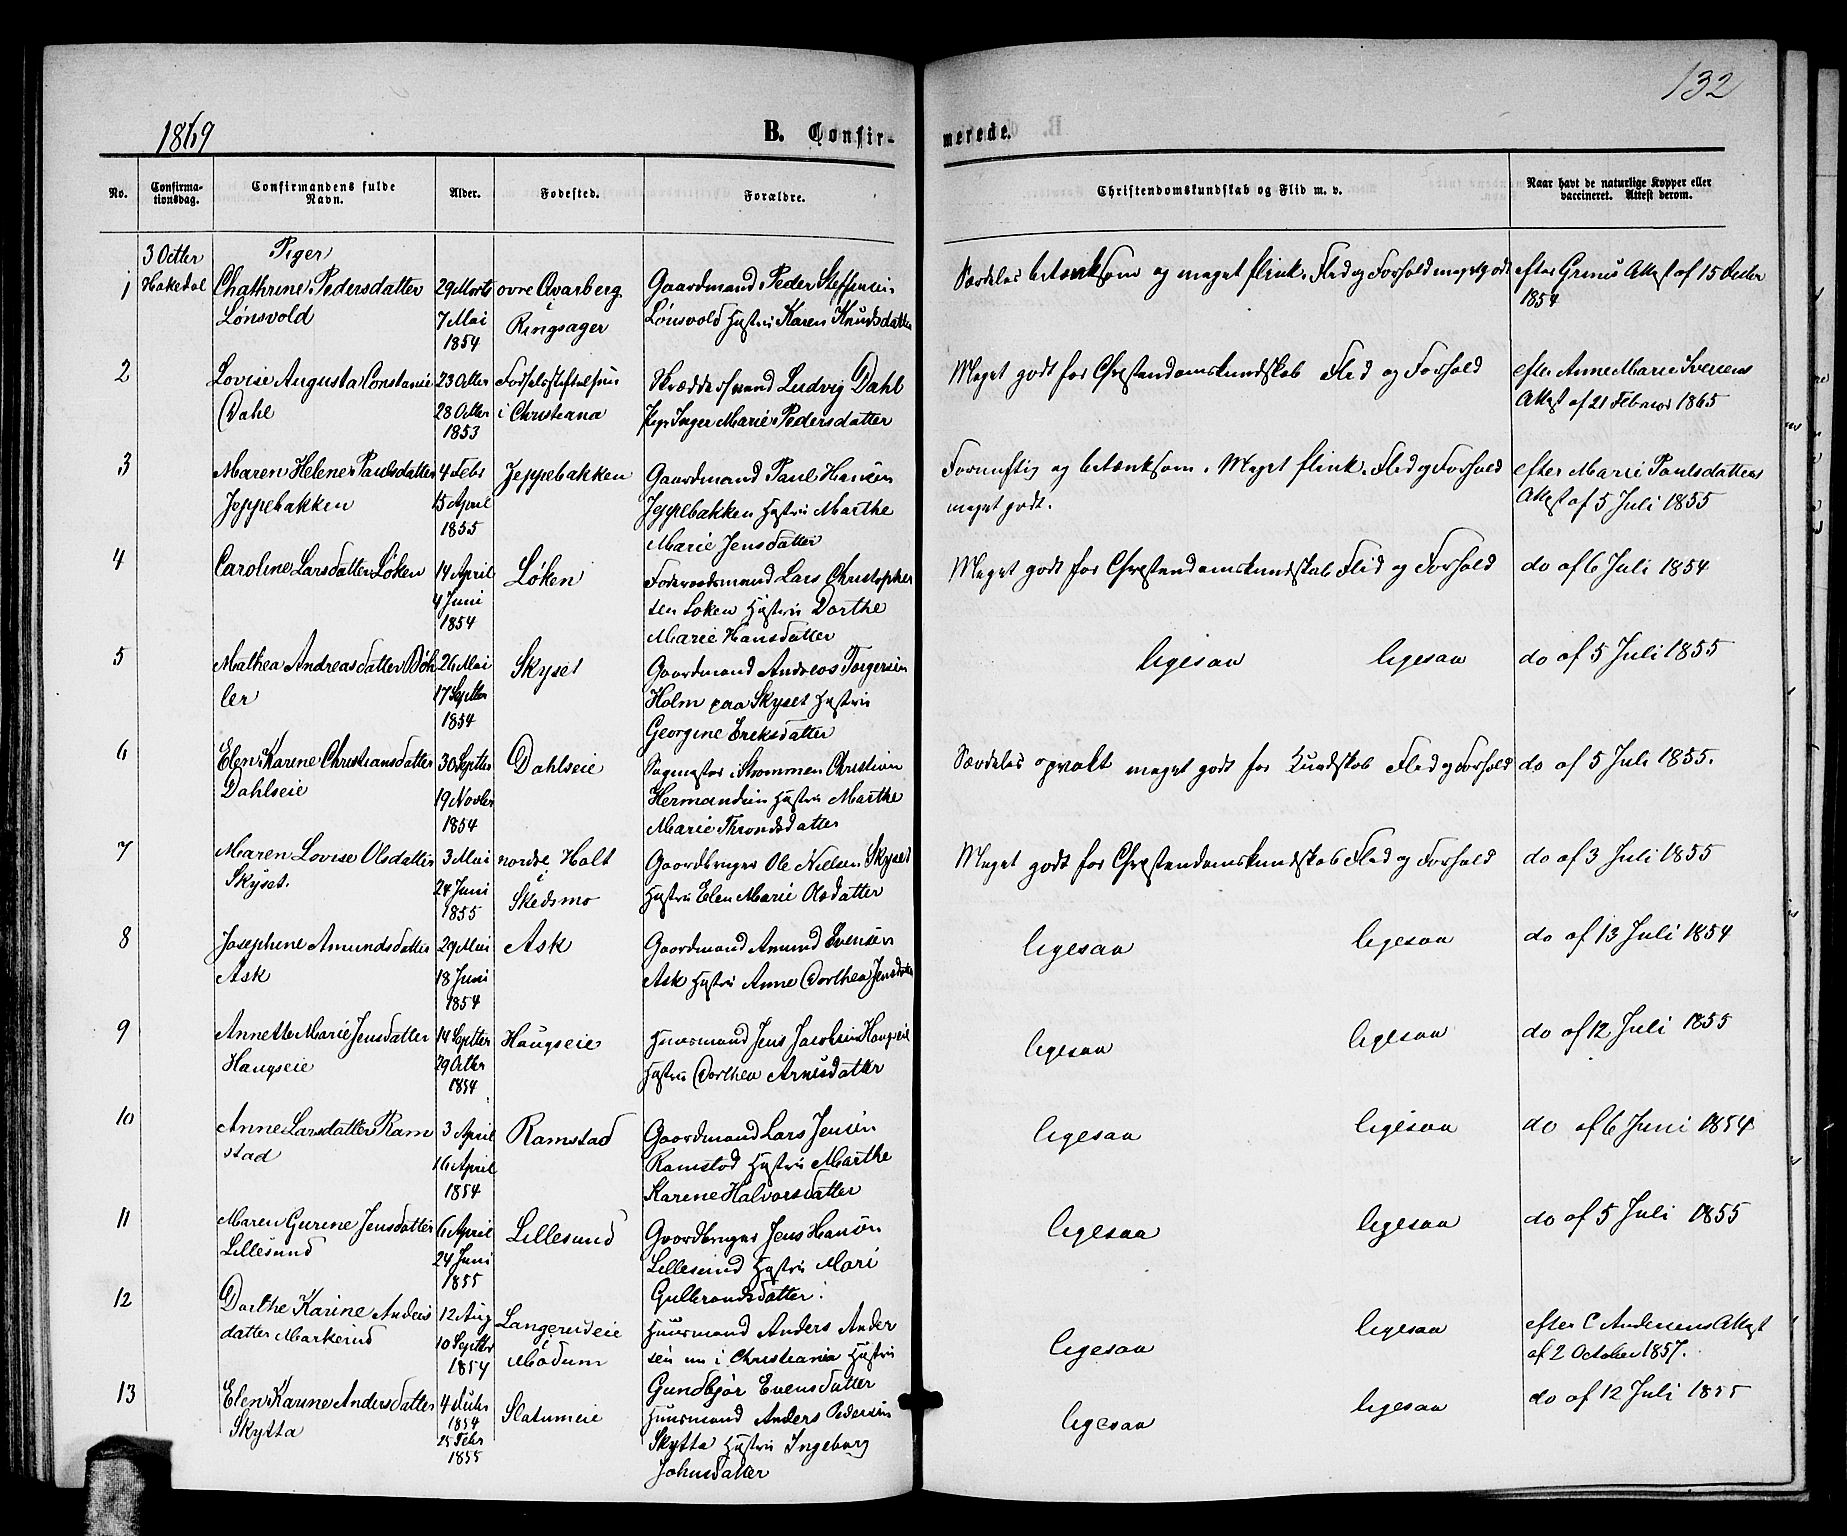 132
1869
B. Confir-
merede.
No.
Confirma-
tionsdag.
Confirmandens fulde
Navn.
Alder.
Fødested.
Forældre.
Christendomskundskab og Flid m. v.
Naar havt de naturlige Kopper eller
vaccineret. Attest derom.
3 Octbr
Hakedal
Piger
1
Chathrine Pedersdatter
Lønsvold
29 Marts
7 Mai
1854
ovre Qvarberg
Ringsager
Gaardmand Peder Steffensen
Lønsvold Hustru Karen Knudsdatter
Særdeles betænksom og meget flink. Flid og Forhold meget godt
efter Attest af 15 Octbr
1854
2
Lovise Augusta Constanse
Dahl
23 Octbr
28 Octbr
1853
Fødselsstiftelsen
i Christiana
Ludvig Dahl
Pige Inger Marie Pedersdatter
Meget godt for Christendomskundskab Flid og Forhold
efter Anne Marie Iversens
Attest af 21 Februar 1865
3
Maren Helene Paulsdatter
Jeppebakken
4 Febr
15 April
1855
Jeppebakken
Gaardmand Paul Hansen
Jeppebakken Hustru Marthe
Marie Jensdatter
Fornuftig og betænksom. Meget flink. Flid og Forhold
meget godt.
efter Marie Paulsdatters
Attest af 5 Juli 1855
4
Caroline Larsdatter Løken
14 April
4 Juni
1854
Løken
Lars Christopher
sen Loken Hustru Dorthe
Marie Hansdatter
Meget godt for Christendomskundskab Flid og Forhold
do af 6 Juli 1854
5
Mathea Andreasdatter Bøh
ler
26 Mai
17 Septbr
1854
Skyset
Gaardmand Andreas Torgersen
Holm paa Skyset Hustru
Georgine Eriksdatter
ligesaa ligesaa
do af 5 Juli 1855
6
Elen Karine Christiansdatter
Dahlseie
30 Septbr
19 Novbr
1854
Dahlseie
Sagmester i Strommen Christian
Hermansen Hustru Marthe
Marie Throndsdatter
Særdeles opvakt meget godt for Kundskab Flid og Forhold
do af 5 Juli 1855.
7
Maren Lovise Olsdatter
Skyset.
3 Mai
24 Juni
1855
nordre Holt
i
Skedsmo
Gaardbruger Ole Nielsen Skyset
Hustru Elen Marie Olsdatter
Meget godt for Christendomskundskab Flid og Forhold
do af 3 Juli 1855
8
Josephine Amundsdatter
Ask
29 Mai
18 Juni
1854
Ask
Gaardmand Amund Evensen
Ask Hustru Anne Dorthea Jensdatter
ligesaa ligesaa
do af 13 Juli 1854
9
Annette Marie Jensdatter
Haugseie
14 Septbr
29 Octbr
1854
Haugseie
Huusmand Jens Jacobsen Haugseie
Hustru Dorthea Arnesdatter
ligesaa ligesaa
do af 12 Juli 1855
10
Anne Larsdatter Ram
stad
3 April
16 April
1854
Ramstad
Gaardmand Lars Jensen
Ramstad Hustru Marthe
Karine Halvorsdatter
ligesaa ligesaa
do af 6 Juni 1854
11
Maren Gurine Jensdatter
Lillesund
6 April
24 Juni
1855
Lillesund
Gaardbruger Jens Hansen
Lillesund Hustru Mari
Gulbrandsdatter.
ligesaa ligesaa
do af 5 Juli 1855
12
Dorthe Karine Anders
datter Markerud
12 Aug
10 Septbr
1854
Langerudeie
i
Modum
Huusmand Anders Ander
sen nu i Christiania Hustru
Gundbjør Evensdatter
ligesaa ligesaa
efter C Andersens Attest
af 2 October 1857.
13
Elen Karine Andersdatter
Skytta
4
1854
25 Febr
1855
Slatumeie
Huusmand Anders Pedersen
Skytta Hustru Ingeborg
Johnsdatter
ligesaa ligesaa
do af 12 Juli 1855